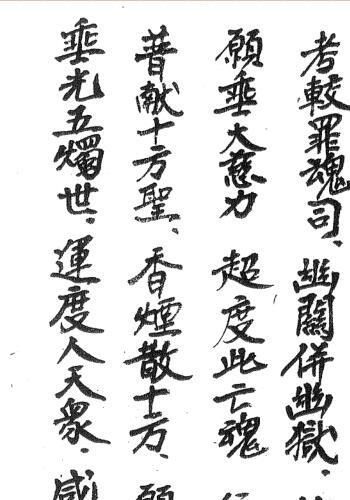 考較罪魂司、幽關併幽獄、
願垂大慈力　超度此亡魂
普献十方聖、香煙散十方、願
垂光五燭世、運度人天衆、咸